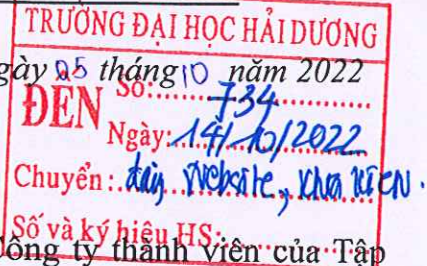 TRƯỜNG ĐẠI HỌC HẢI DƯƠNG
gày 05 tháng 10 năm 2022
ĐẾN Số: 734
Ngày: 14/10/2022
Chuyển: đăng Website,
Số và ký hiệu HS:
Công ty thành viên của Tập